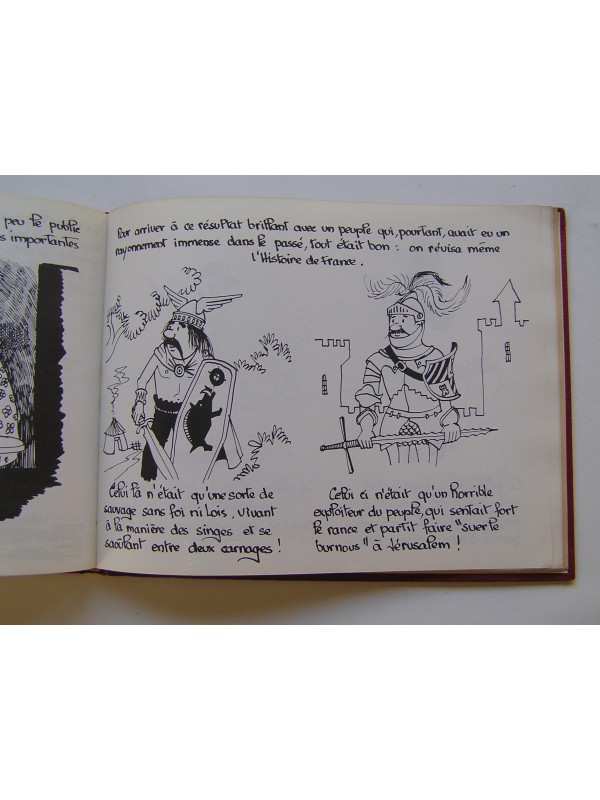 peu le public
s importantes
Pour arriver à ce résultat brillant avec un peuple qui, pourtant, avait eu un
rayonnement immense dans le passé, tout était bon : on révisa même
l'Histoire de France.
Celui là n'était qu'une sorte de
sauvage sans foi ni lois, vivant
à la manière des singes et se
saoûlant entre deux carnages !
Celui ci n'était qu'un horrible
exploiteur du peuple, qui sentait fort
le rance et partit faire "suer le
burnous" à Jérusalem !